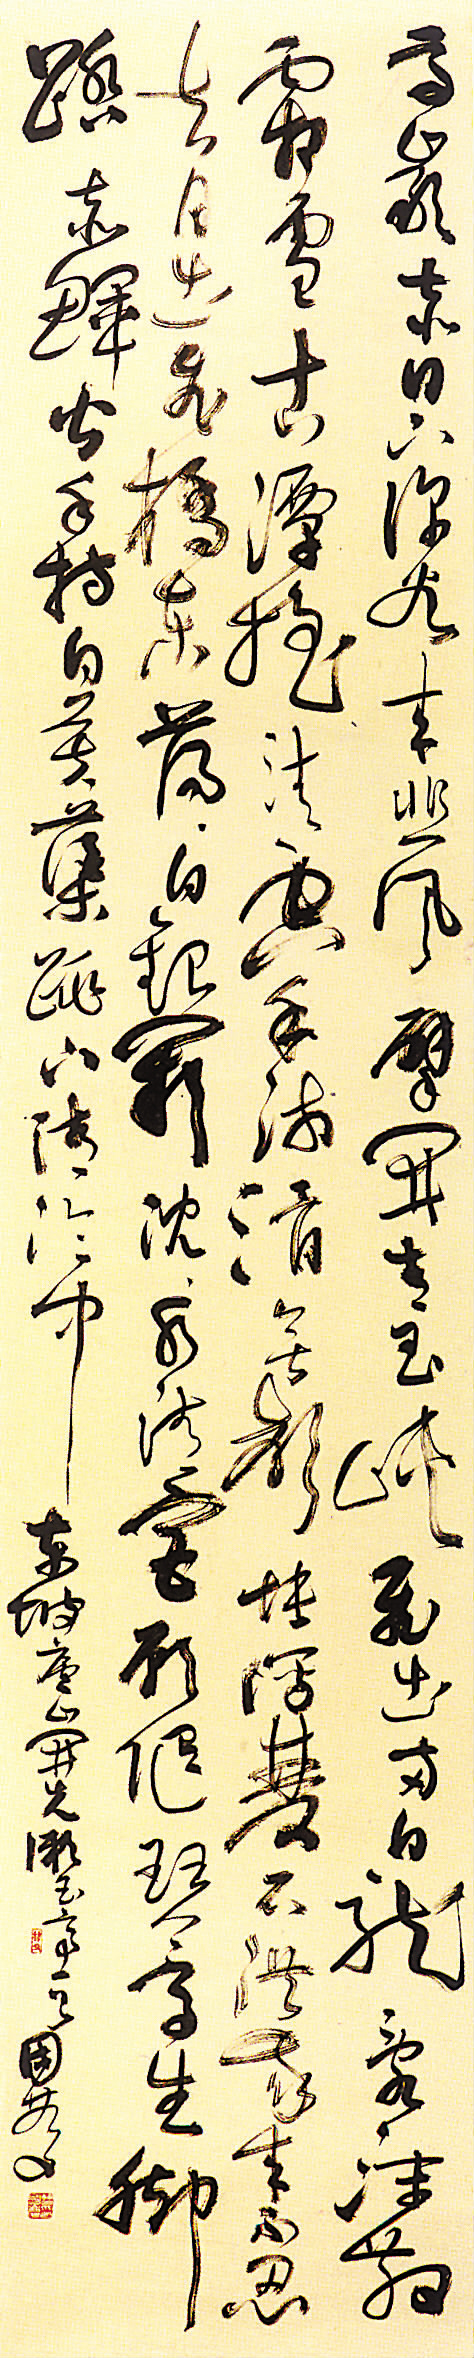 高巖赤日下深谷来悲風擘開青玉峡飛出两白龍亂沫散
霜雪古潭摇清空余流滑無聲快瀉雙石洪我来不忍
去月出飛橋東蕩蕩白銀闕沈沈水清宫願随琴高生脚
踏赤鯶公手持白芙蕖跳下清泠中 東坡廬山開先漱玉亭 周